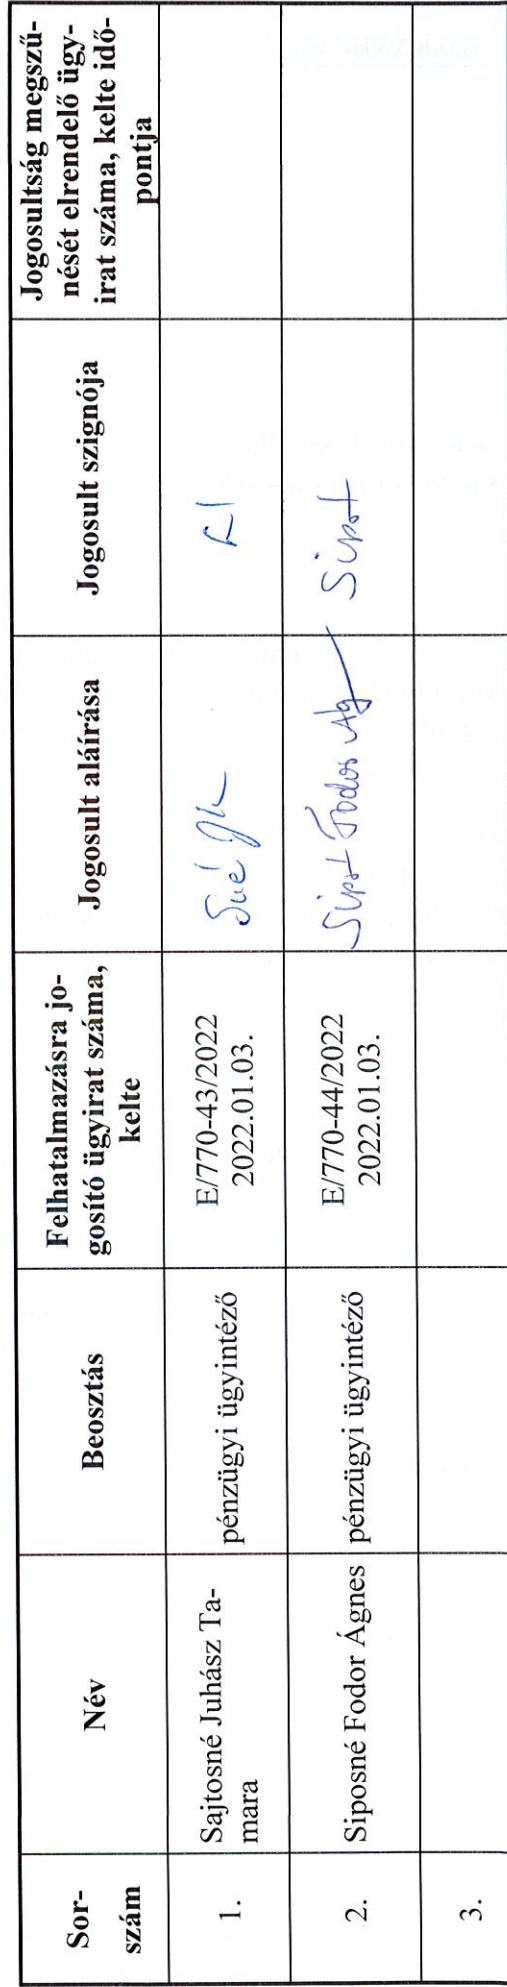 Sor-
szám
Név
Beosztás
Felhatalmazásra jo-
gosító ügyirat száma,
kelte
Jogosult aláírása
Jogosult szignója
Jogosultság megszű-
nését elrendelő ügy-
irat száma, kelte idő-
pontja
1.
Sajtosné Juhász Ta-
mara
pénzügyi ügyintéző
E/770-43/2022
2022.01.03.
2.
Siposné Fodor Ágnes
pénzügyi ügyintéző
E/770-44/2022
2022.01.03.
3.